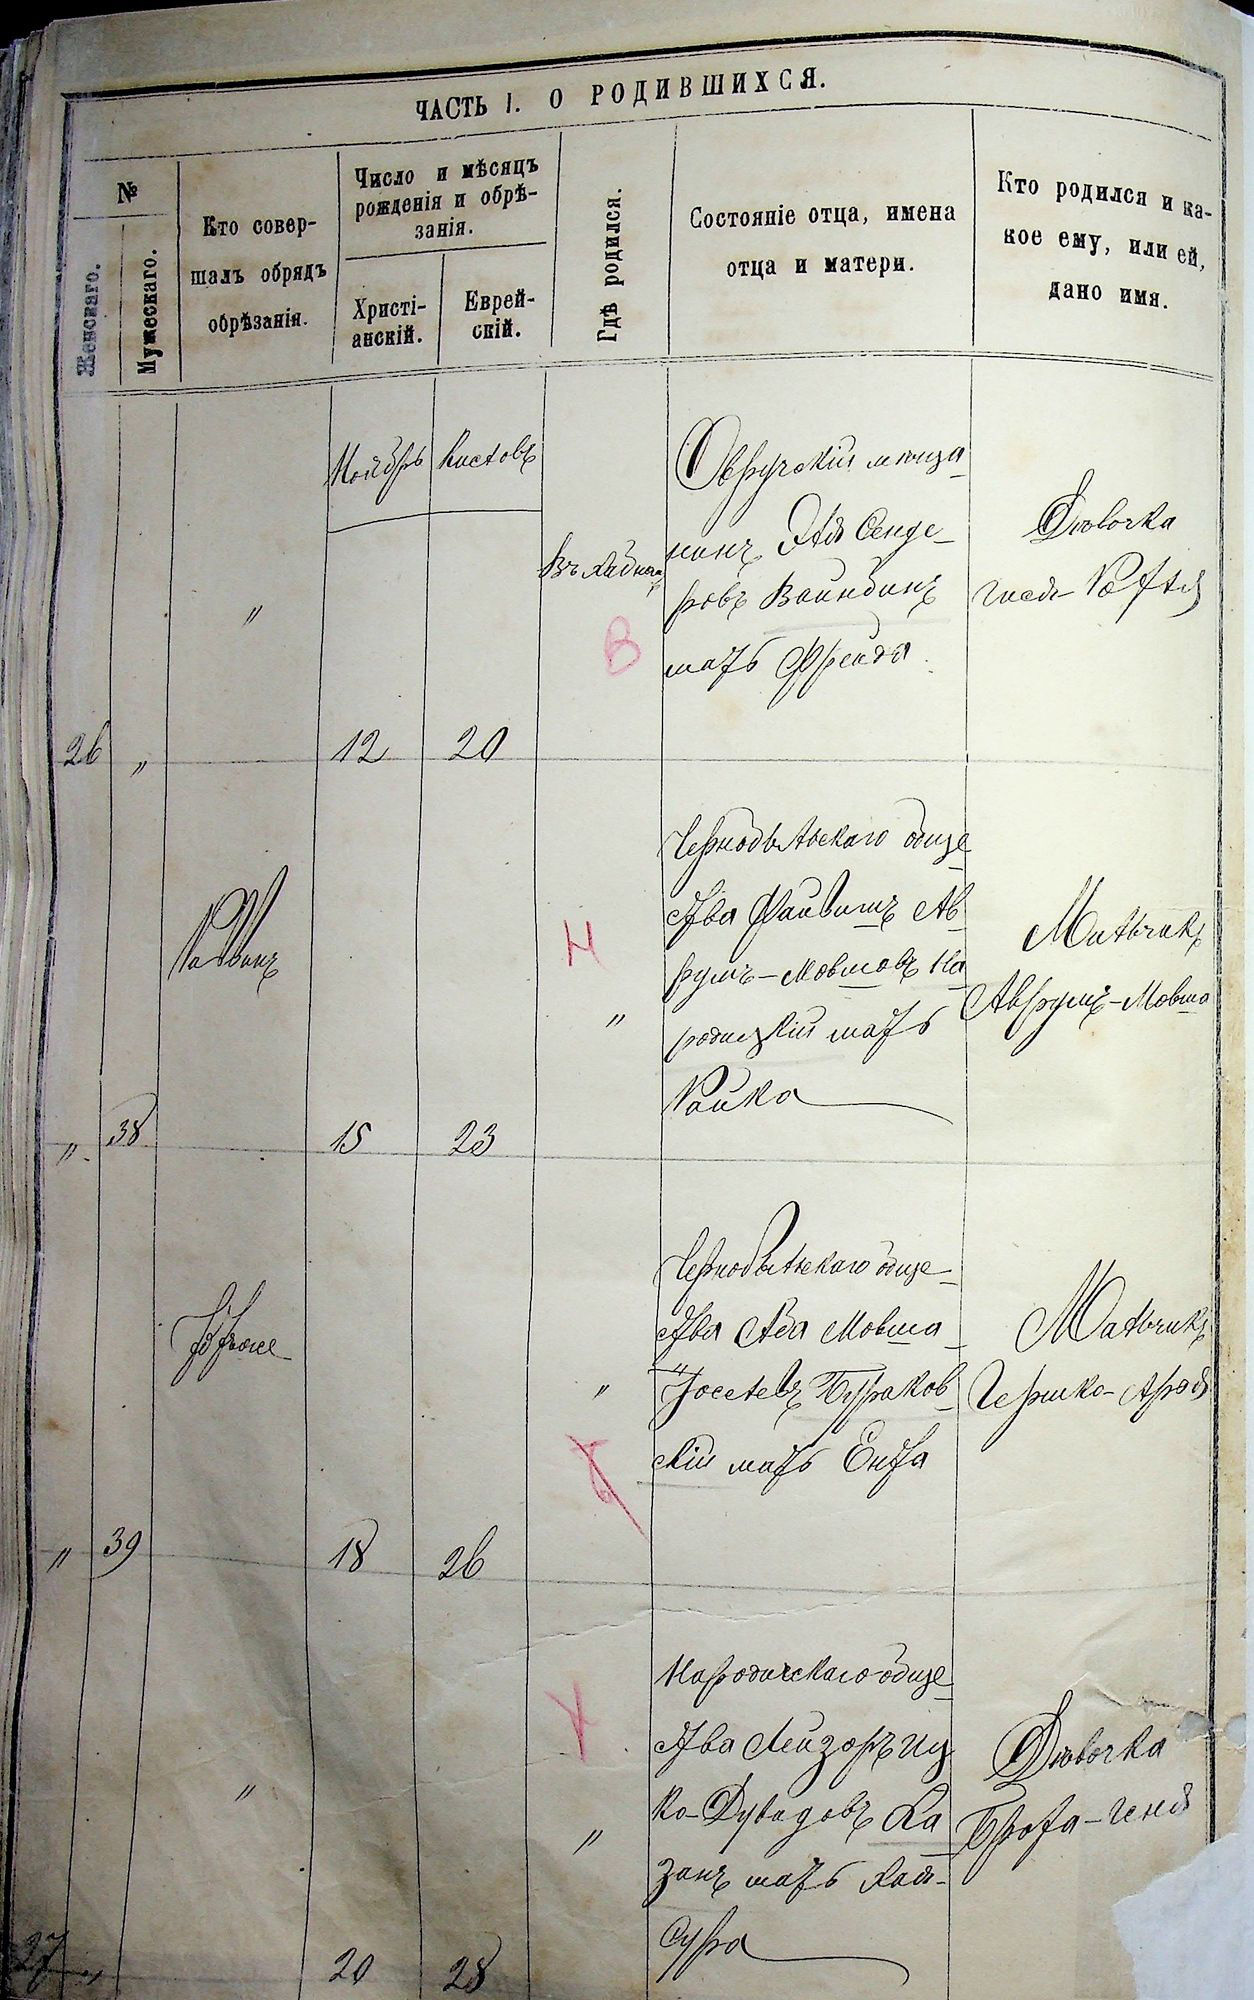 ЧАСТЬ I. О РОДИВШИХСЯ.
№
Женскаго.
Мужескаго.
Кто совер-
шалъ обрядъ
обрѣзанія.
Число и мѣсяцъ
рожденія и обрѣ-
занія.
Христі-
анскій.
Еврей-
скій.
Гдѣ родился.
Состояніе отца, имена
отца и матери.
Кто родился и ка-
кое ему, или ей,
дано имя.
Ноябрь
Кислевъ
26
"
"
12
20
В
Овручскій мѣща-
нинъ Эля Сенде-
ровъ Вайнбинъ
мать Фрейда
Дѣвочка
"
38
Раввинъ
15
23
Н
"
Чернобыльскаго обще-
ства Файвишъ Ав-
румъ-Мовшовъ На
родицкій мать
Райка
Мальчикъ
Аврумъ-Мовша
"
39
18
26
"
Б
Чернобыльскаго обще-
ства Аба Мовша-
Іоселевъ Бураков-
скій мать Ента
Мальчикъ
Гершко-
27
"
"
20
28
К
"
Народичскаго обще-
ства Лейзоръ Иц
ко-Дувидовъ Ка
занъ мать Хая-
Сура
Дѣвочка